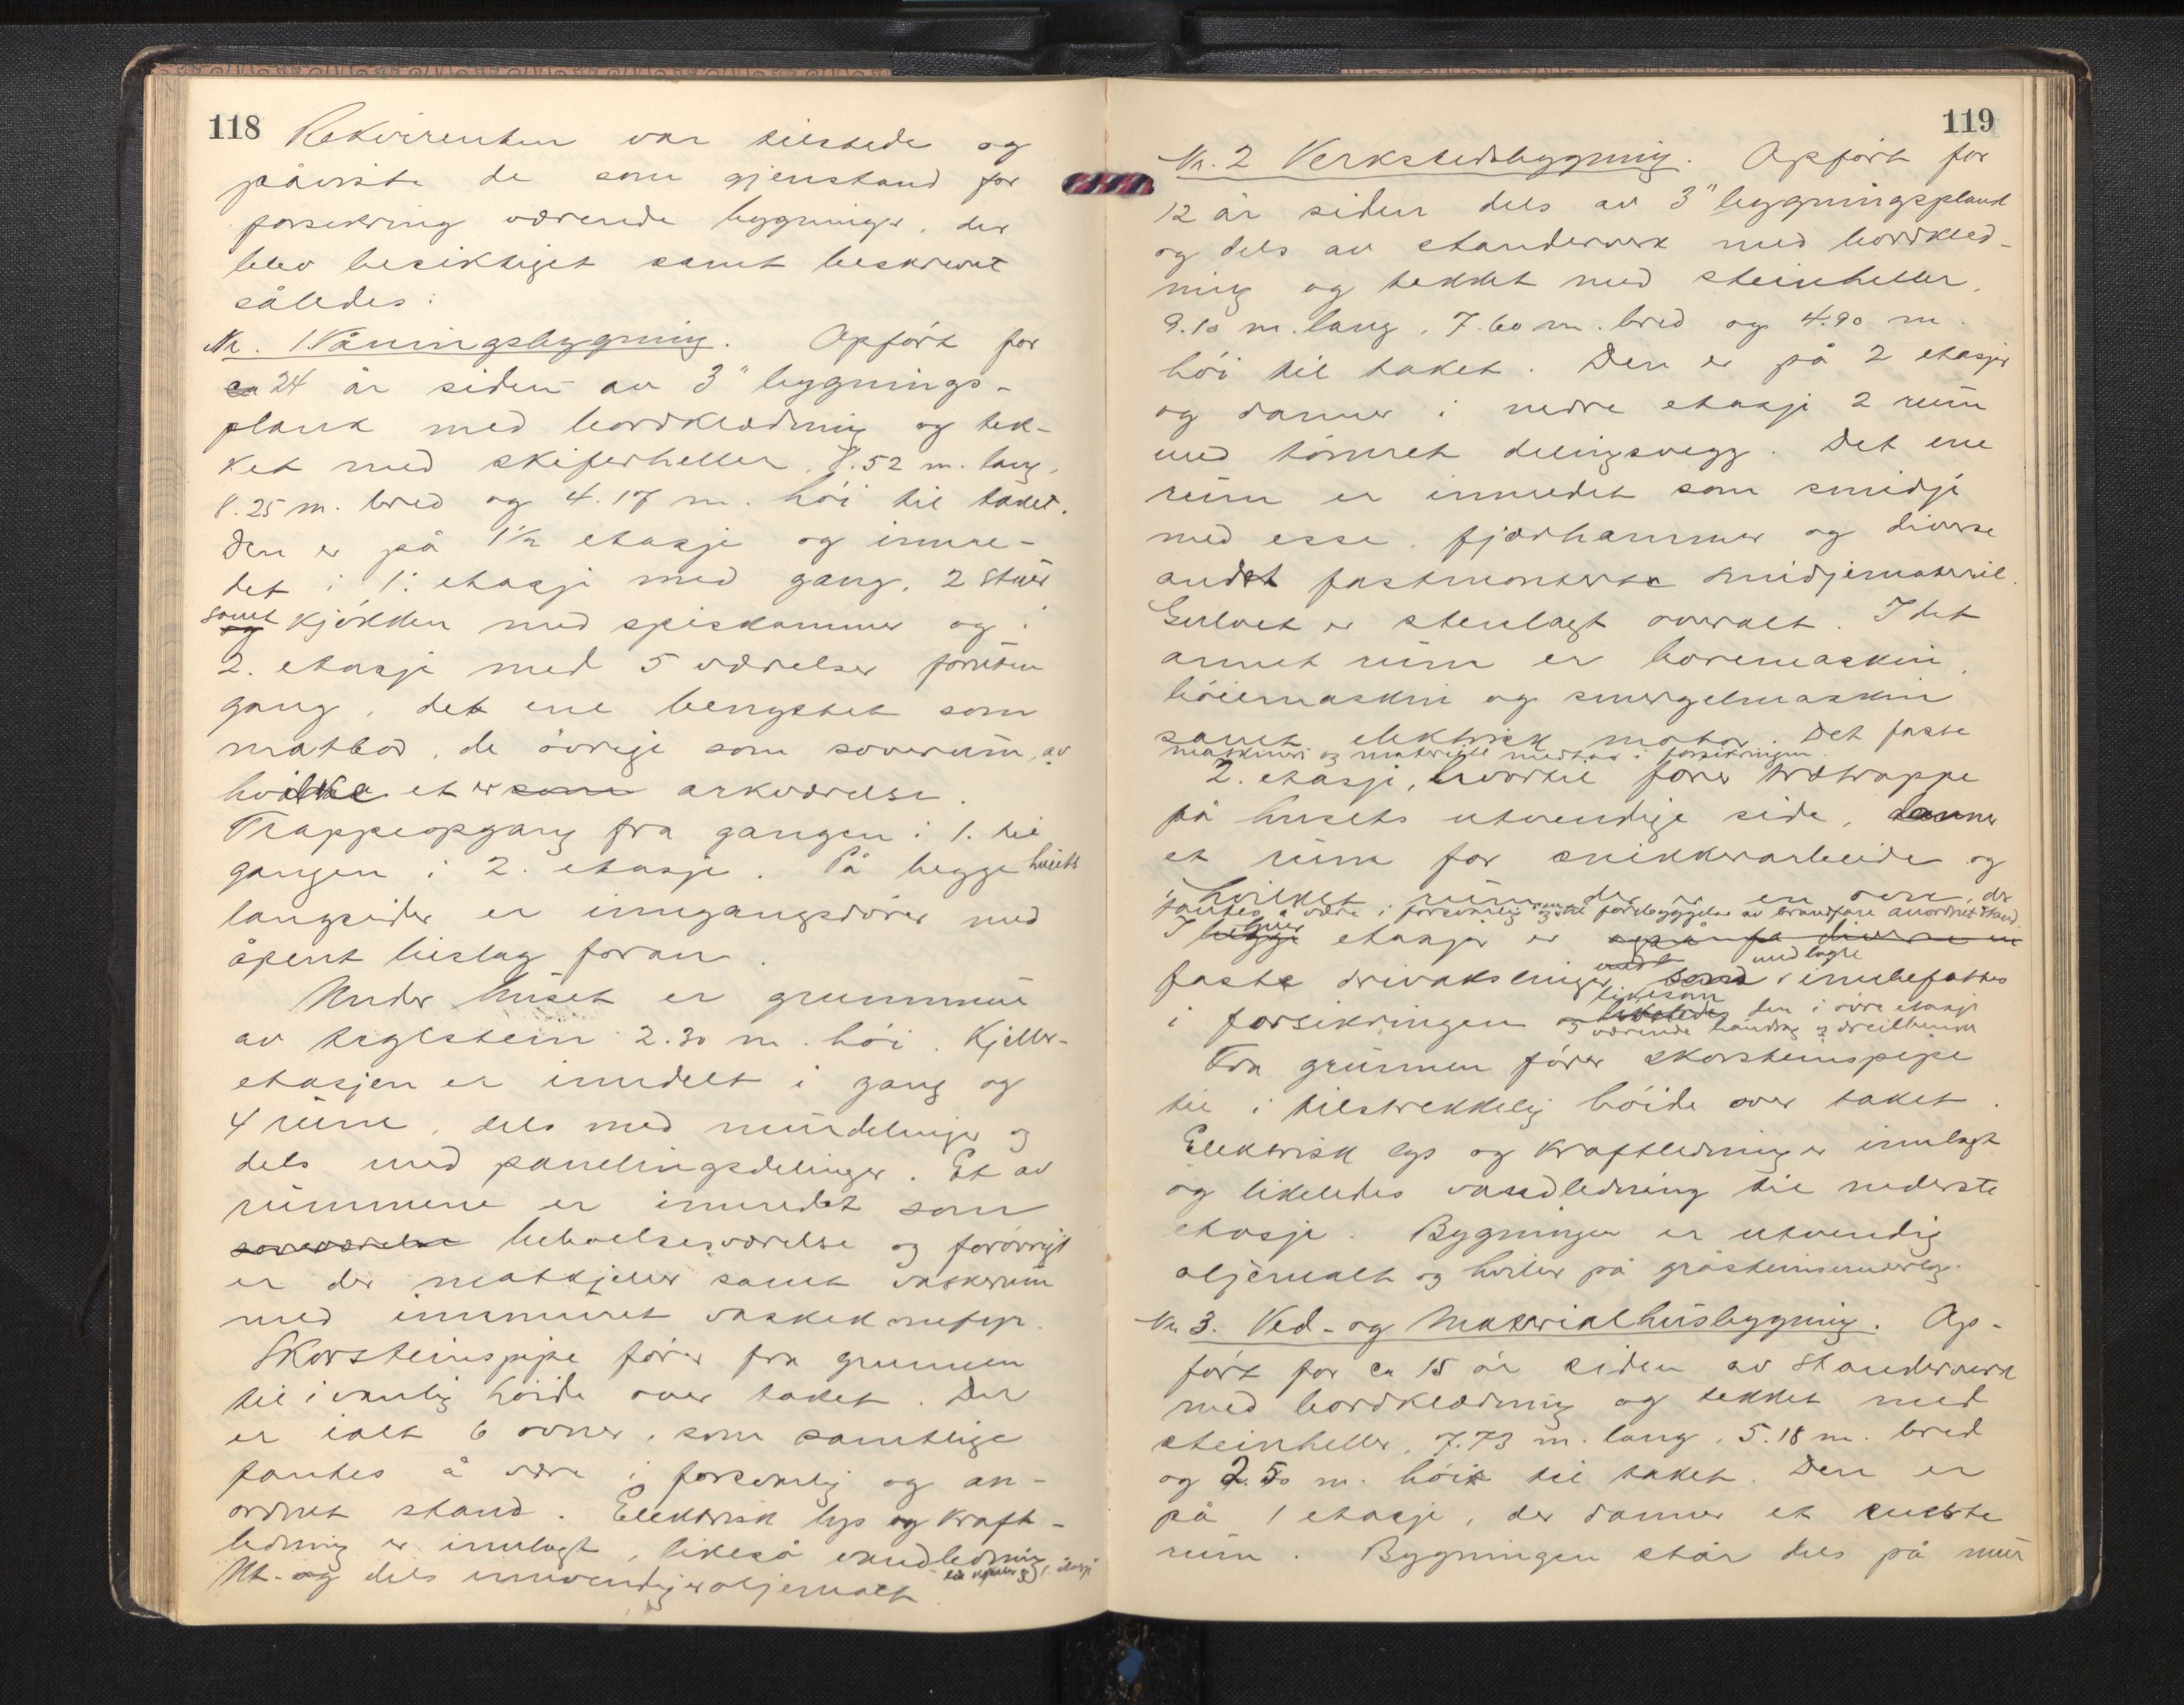 118
Rekvirenten var tilstede og
påviste de som gjenstand for
forsikring værende bygninger, der
blev besiktiget samt beskrevet
således:
Nr. 1 Våningsbygning. Opført for
ca 24 år siden av 3" bygnings-
plank med bordklædning og tek-
ket med skiferheller, 8.52 m. lang,
8.25 m. bred og 4.17 m. höi til taket.
Den er på 1½ etasje og innre-
det i 1. etasje med gang, 2 stuer
samt
og kjökken med spiskammer og i
2. etasje med 5 værelser foruten
gang, det ene benyttet som
matbod, de övrige som soverum, av
hvilke et er som arkværelse.
Trappeopgang fra gangen i 1. til
gangen i 2. etasje. På begge husets
langsider er inngangsdörer med
åpent bislag foran.
Under huset er grunnmur
av teglstein 2.30 m. höi. Kjeller-
etasjen er inndelt i gang og
4 rum, dels med murdelinger og
dels med panelingsdelinger. Et av
rummene er innredet som
soveværelse beboelsesværelse og forövrigt
er der matkjeller samt vaskerum
med innmuret vaskekomfyr.
Skorsteinspipe förer fra grunnen
til i vanlig höide over taket. Der
er ialt 6 ovner, som samtlige
fantes å være i forsvarlig og an-
ordnet stand. Elektrisk lys og kraft-
ledning er innlagt, likeså vandledning
til kjeller og 1. etasje
Ut- og dels innvendig er oljemalt
119
Nr. 2 Verkstedsbygning. Opført for
12 år siden dels av 3" bygningsplank
og dels av standerverk med bordkled-
ning og tekket med steinheller,
9.10 m. lang, 7.60 m. bred og 4.90 m.
höi til taket. Den er på 2 etasjer
og danner i nedre etasje 2 rum
med tömret delingsvegg. Det ene
rum er innredet som smidje
med esse, fjærhammer og diverse
andet fastmonterte smidjemateriel.
Gulvet er stenlagt overalt. I det
annet rum er boremaskin,
höiemaskin og smergelmaskin
samt elektrisk motor. Det faste
maskineri og materiell medtas i forsikringen.
2. etasje, hvortil förer trætrappe
på husets utvendige side, danner
et rum for snikkerarbeide og
i hvilket rum der er en ovn, der
fantes å være i forsvarlig og til forebyggelse av brandfare anordnet stand.
I begge etasjer er
faste drivakslinger med lagre innbefattes
i forsikringen likesom den i övre etasje
værende båndsag og dreiebenk
Fra grunnen förer skorsteinspipe
til i tilstrekkelig höide over taket.
Elektrisk lys og kraftledning er innlagt
og likeledes vandledning til nederste
etasje. Bygningen er utvendig
oljemalt og hviler på gråsteinsunderlag.
Nr 3. Ved- og Materialhusbygning. Op-
fört for ca 15 år siden av standerverk
med bordklædning og tekket med
steinheller, 7.73 m. lang, 5.18 m. bred
og 2.50 m. höi til taket. Den er
på 1 etasje, der danner et eneste
rum. Bygningen står dels på mur